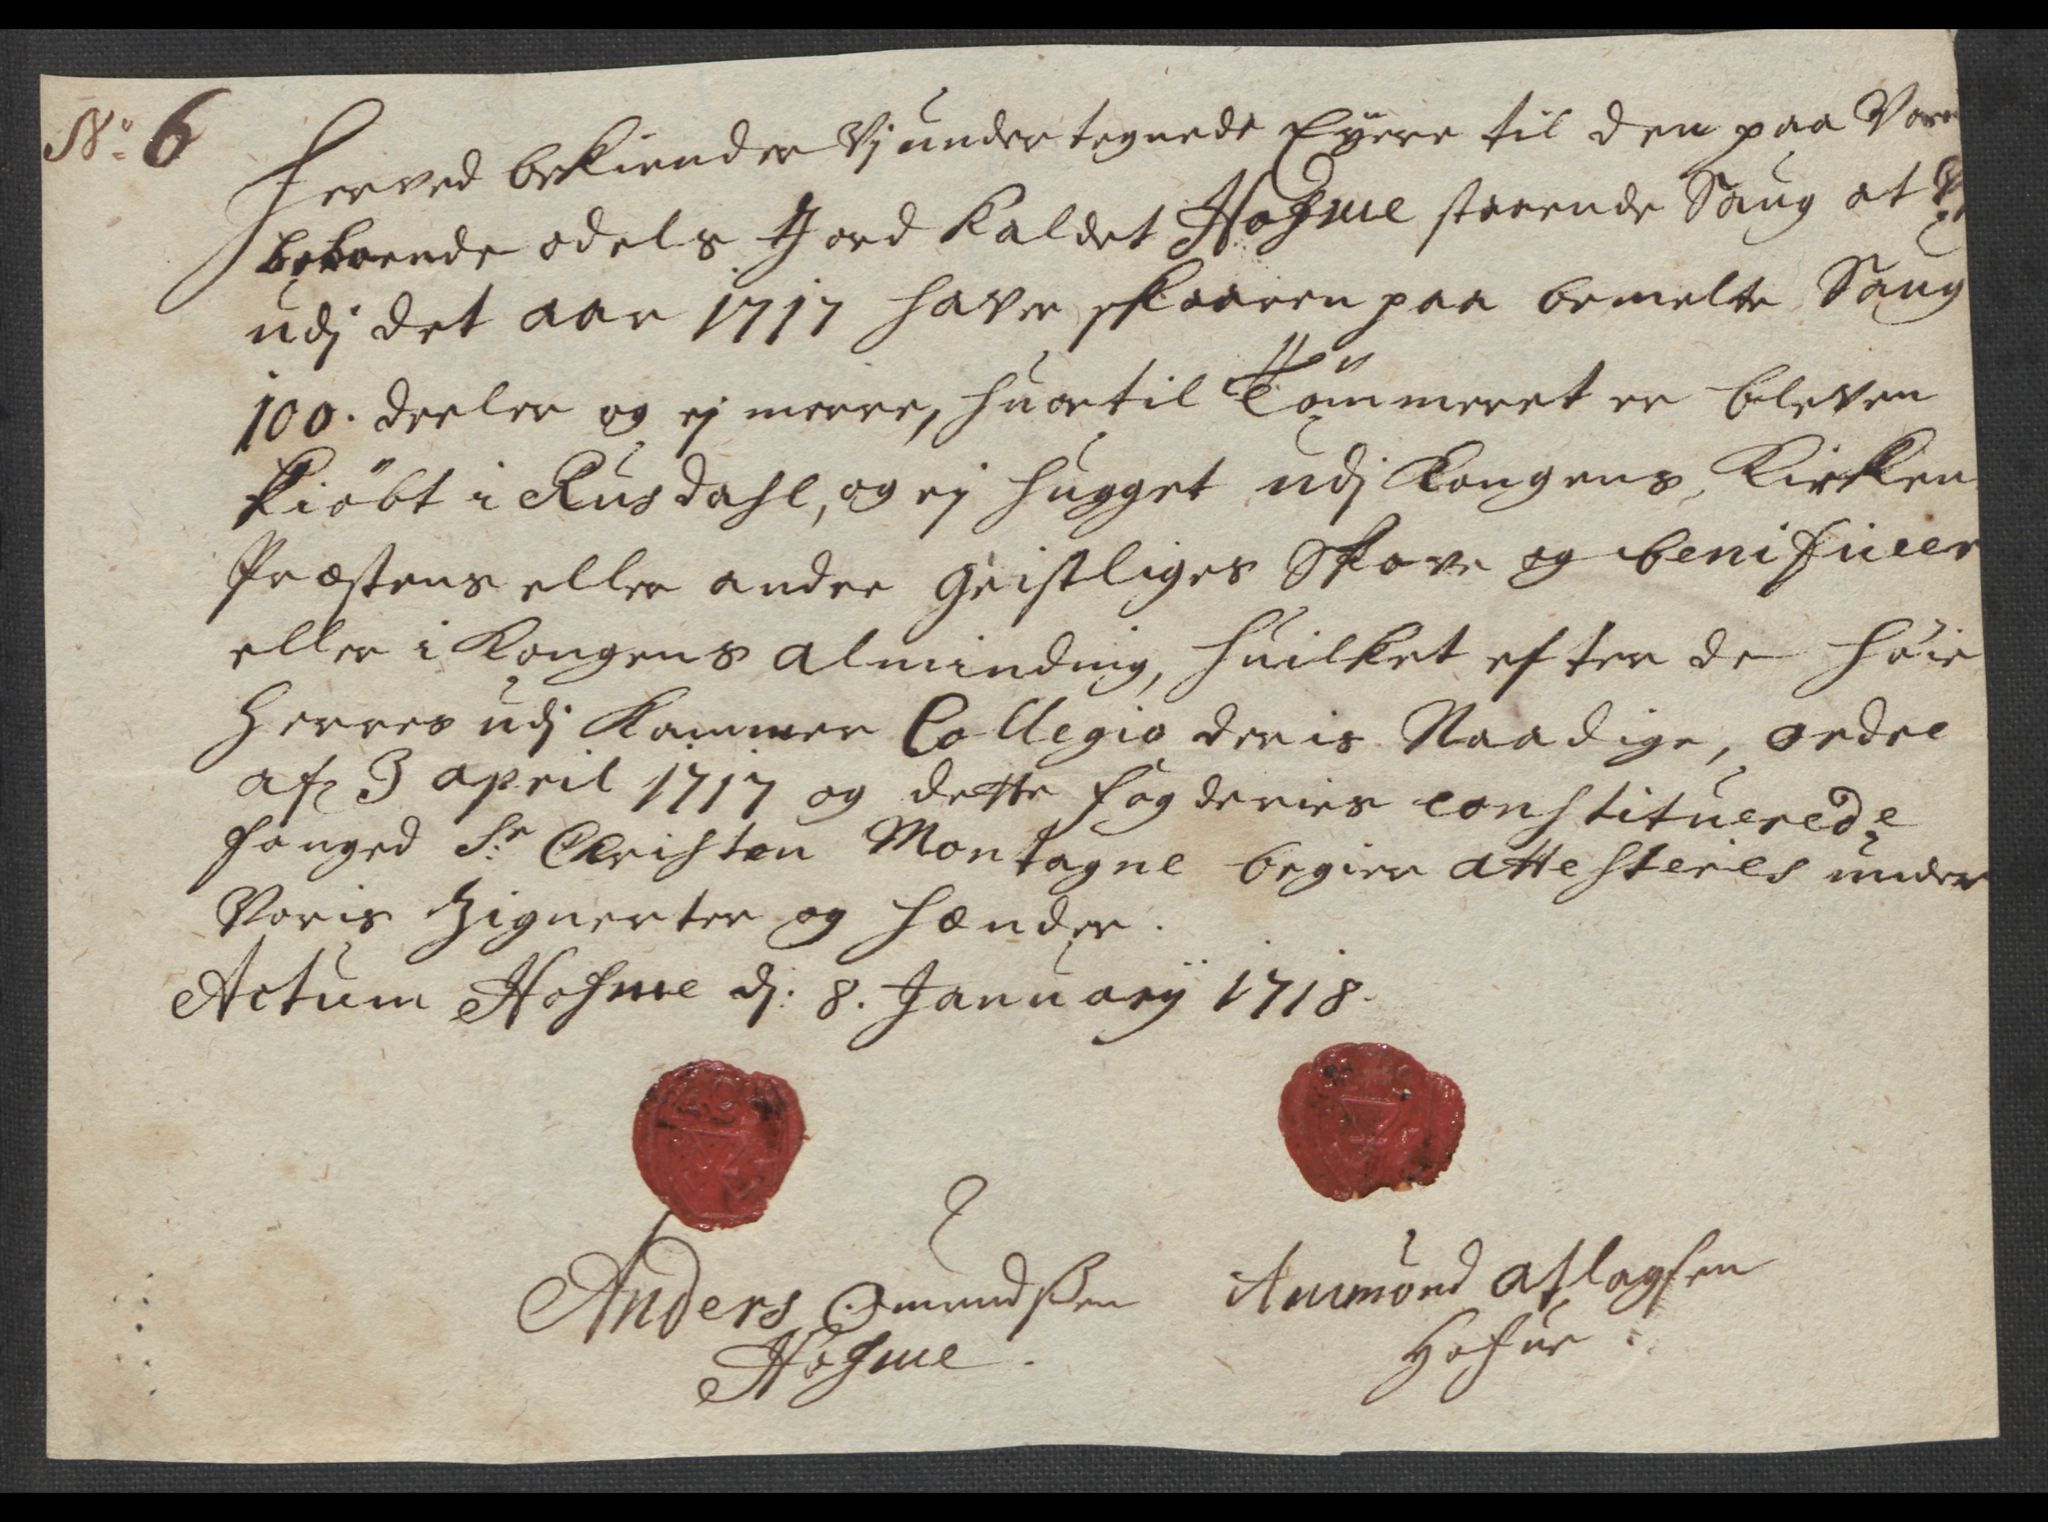 No. 6
Herved bekiender Vj undertegnede Eÿere til den paa Vore
beboende odels Jord kaldet Hohme staaende Saug at Vj
udj det aar 1717 haver skaaren paa bemelte Saug
100. deeler og ej meere, huortil Tömmeret er bleven
kiöbt i Rusdahl, og ej hugget udj Kongens, Kirken
Præstens eller andre geistliges Skove og benificier
eller i Kongens alminding, huilket efter de höie
Herres udj Kammer Collegio deris Naadige, ordre
af 3 april 1717 og dette fogderies constituerede
fouged Sr. Christen Montagne begier attesteres under
Voris Zigneter og hænder.
Actum Hohme dj. 8. Januarÿ 1718.
Anders Omundsen
Hohme.
Ammond Aslagsen